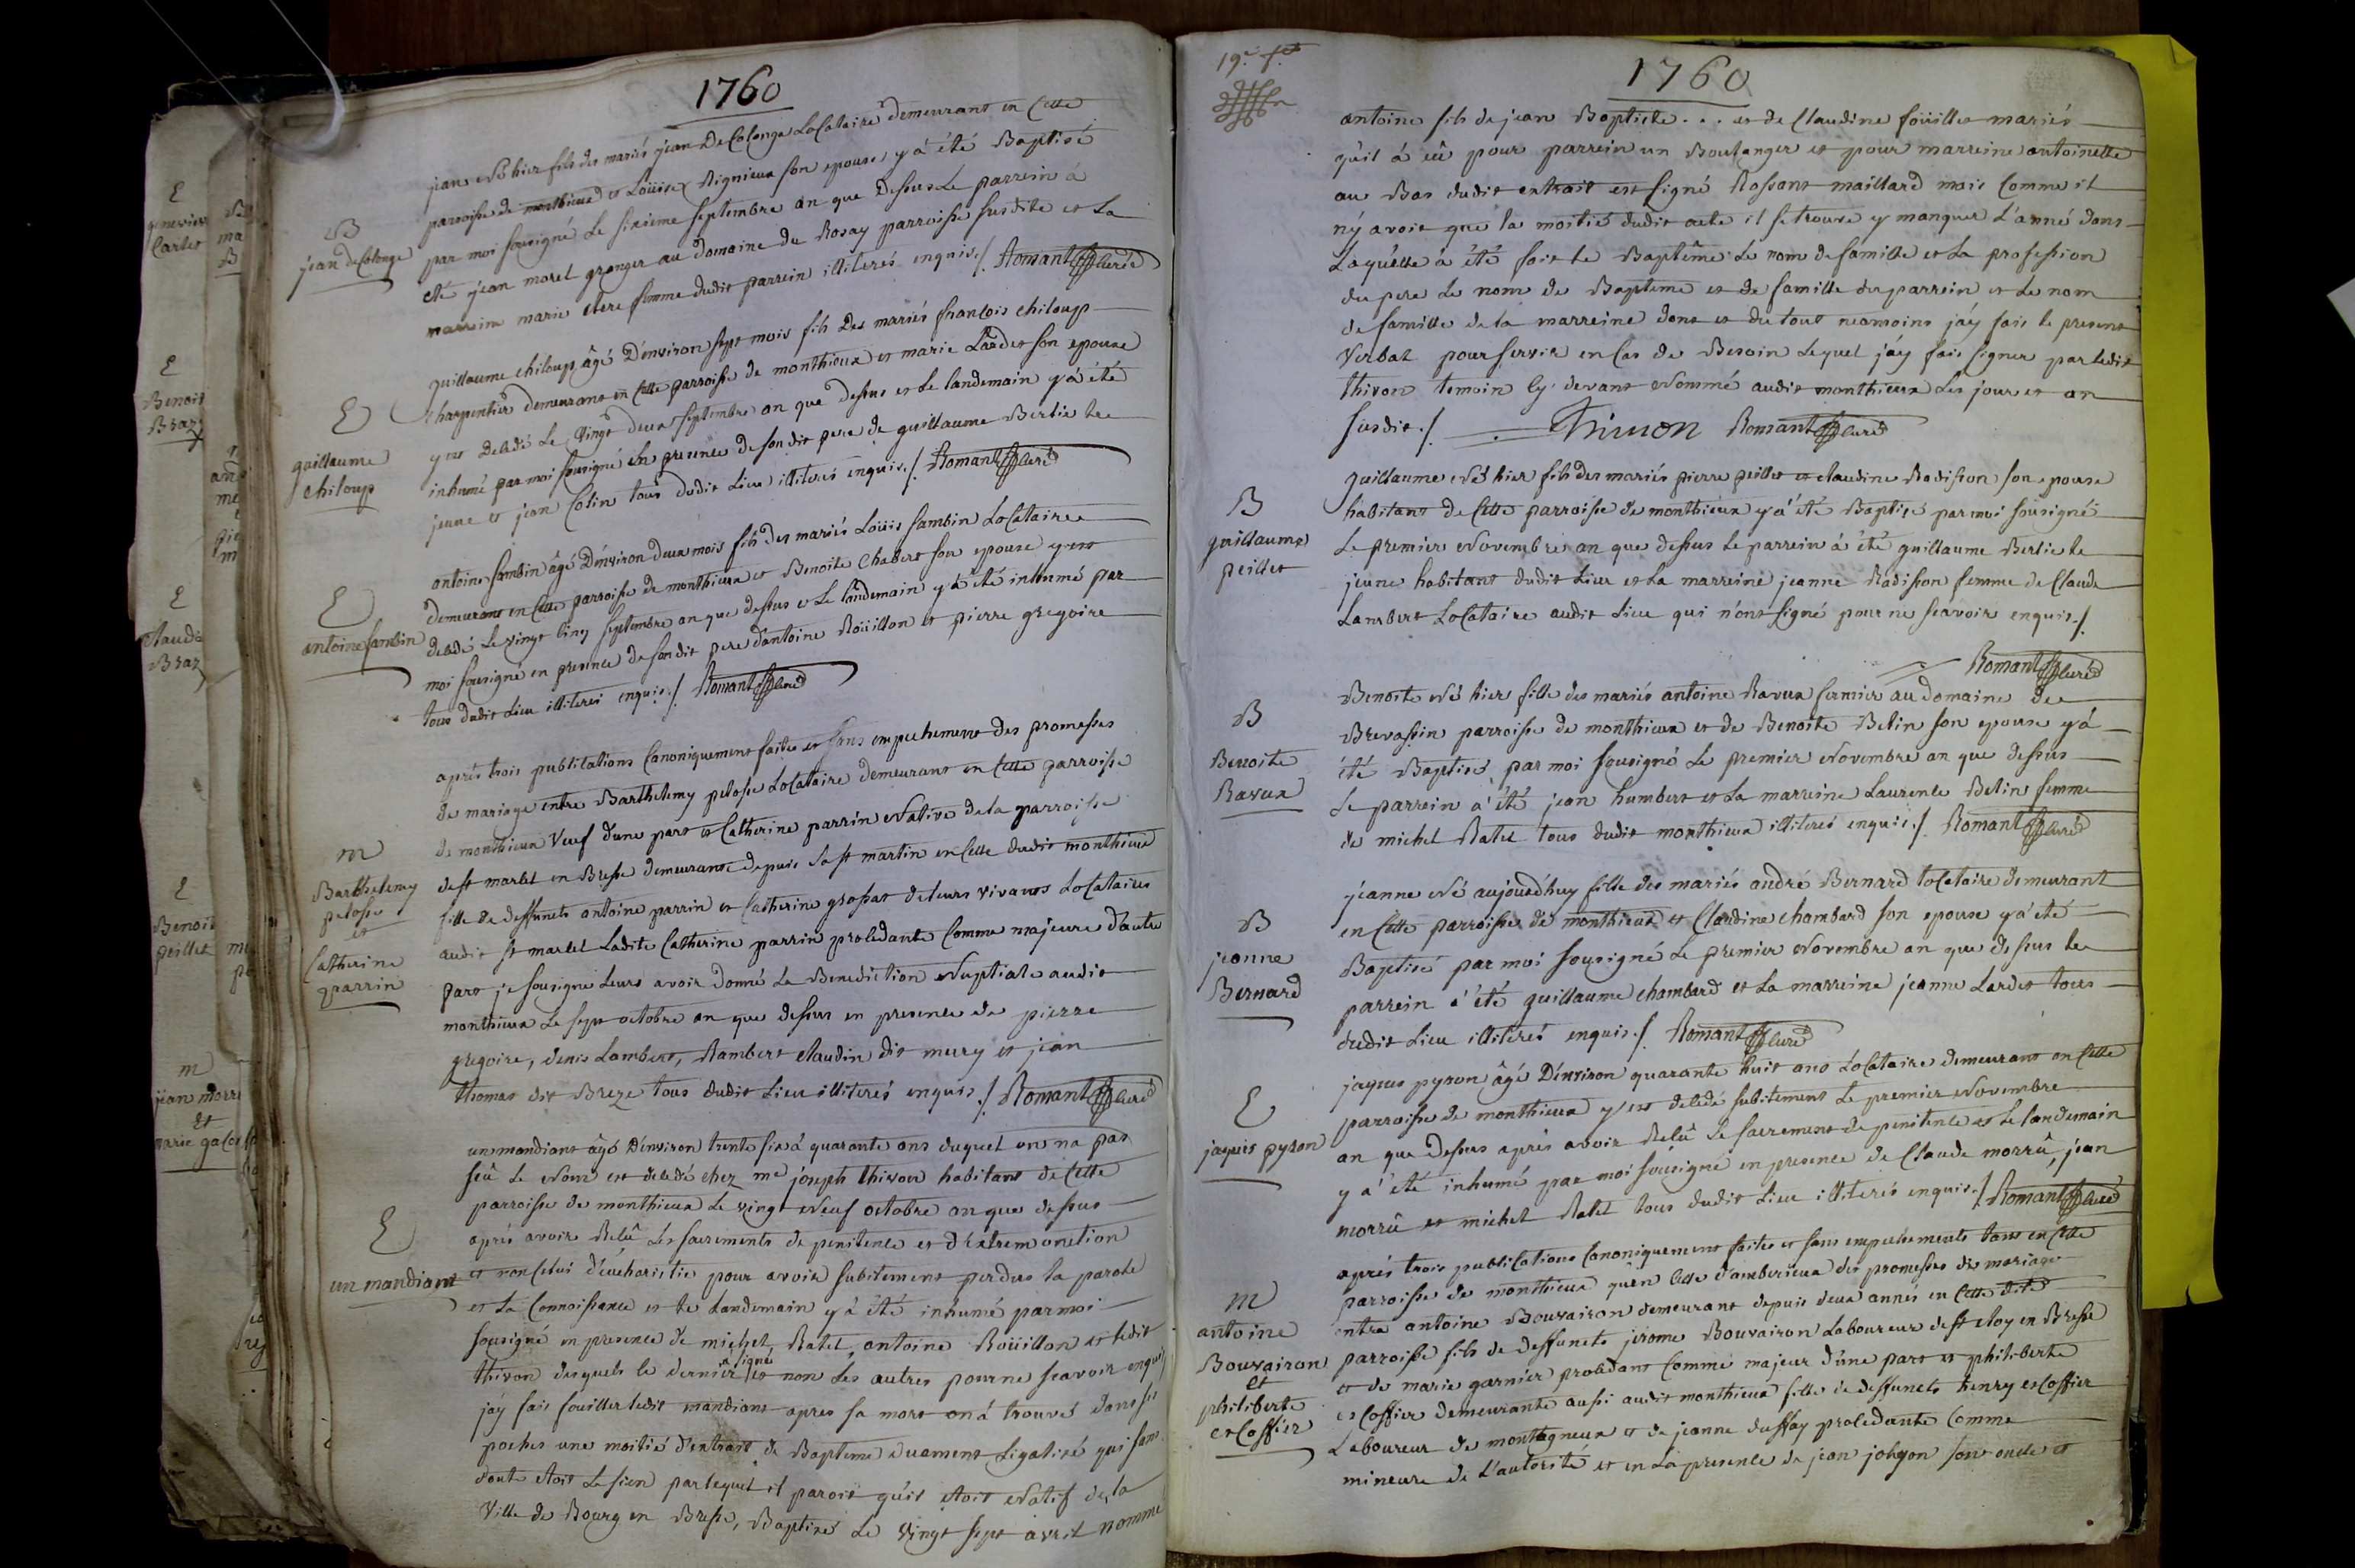 1760
B
jean deColonge
jean né hier fils des mariés jean DeColonge LoCataire demeurant en Cette
parroisse de monthieux et Loüise Rignieux son epouse y a été Baptisé
par moi sousigné Le sixieme septembre an que Dessus Le parrein à
eté jean morel granger au Domaine du Rosay parroisse susdite et La
marreine marie Clere femme dudit parrein illiterés enquis./. Romant Curé
E
guillaume
chiloup
guillaume chiloup âgé D'environ sept mois fils Des mariés francois chiloup
charpentier demeurant en Cette parroisse de monthieux et marie Lardet son epouse
y est Decedé Le vingt deux septembre an que Dessus et Le landemain y a été
inhumé par moi sousigné en presence de son dit pere de guillaume Berlie le
jeune et jean Colin tous dudit Lieu illiterés enquis./. Romant Curé
E
antoine sambin
antoine sambin âgé D'environ deux mois fils des mariés Loüis sambin LoCataire
demeurant en Cette parroisse de monthieux et Benoite Chabert son epouse y est
decedé Le vingt Cinq septembre an que dessus et Le landemain y a été inhumé par
moi sousigné en presence de son dit pere d'antoine Roüillon et pierre gregoire
tous dudit Lieu illiterés enquis./. Romant Curé
m
Barthelemy
pelosse
et
Catherine
parrin
après trois publications Canoniquement faites et sans empechement des promesses
de mariage entre Barthelemy pelosse LoCataire demeurant en Cette parroisse
de monthieux Veuf d'une part et Catherine parrin Native de la parroisse
de st marcel en Bresse demeurante depuis La st martin en Cette dudit monthieux
fille de deffunts antoine parrin et Catherine grosjat de leurs vivants LoCataires
audit st marcel Ladite Catherine parrin procedante Comme majeure d'autre
part je sousigné Leurs avoir donné La Benediction Nuptiale audit
monthieux Le sept octobre an que dessus en presence de pierre
gregoire, denis Lambert, Rambert Claudin dit mury et jean
thomas dit Breze tous dudit Lieu illiterés enquis./. Romant Curé
E
un mandiant
un mandiant âgé D'environ trente six à quarante ans duquel on na pas
seû Le Nom est decedé chez me joseph thivon habitant de Cette
parroisse de monthieux Le vingt Neuf octobre an que dessus
après avoir Reçû Les sacrements de penitence et d'extrem onction
et non Celui d'eucharistie pour avoir subitement perdus la parole
et La Connoissance et Le Landemain y a été inhumé par moi
sousigné en presence de michel Ratel, antoine Roüillon et ledit
thivon desquels le dernier a signé et non Les autres pour ne scavoir enquis
j'ay fais fouiller ledit mandiant apres sa mort on à trouvé dans ses
poches une moitié d'extrait de Bapteme duement Ligalisé qui sans
doute etoit Le sien par lequel il paroit qu'il etoit Natif de la
Ville de Bourg en Bresse, Baptisé Le vingt sept avril nommé
19e ft
1760
antoine fils de jean Baptiste . . . et de Claudine foüillet mariés
qu'il à eû pour parrein un Boulanger et pour marreine antoinette
au Bas dudit extrait est signé Rossant maillard mais Comme il
n'y avoit que la moitié dudit acte il se trouve y manquer L'anné dans
Laquelle a été fait le Baptême Le nom de famille et La profession
du pere Le nom de Bapteme et de famille du parrein et Le nom
de famille de la marreine dont et du tout neamoins j'ay fais le present
Verbal pour servir en Cas de Besoin Lequel j'ay fais signer par ledit
thivon temoin Cy devant Nommé audit monthieux Les jour et an
susdit./. Thivon Romant Curé
B
guillaume
peillet
guillaume Né hier fils des mariés pierre peillet et claudine Radisson son epouse
habitant de Cette parroisse de monthieux y a été Baptisé par moi sousigné
Le premier Novembre an que dessus le parrein à été guillaume Berlie le
jeune habitant dudit Lieu et La marreine jeanne Radisson femme de Claude
Lambert LoCataire audit Lieu qui n'ont signé pour ne scavoir enquis./.
Romant Curé
B
Benoite
Ravux
Benoite Né hier fille des mariés antoine Ravux fermier au Domaine de
Brevassin parroisse de monthieux et de Benoite Belin son epouse y a
été Baptisé par moi sousigné Le premier Novembre an que dessus
Le parrein a été jean humbert et La marreine Laurence Belin femme
de michel Ratel tous dudit monthieux illiterés enquis./. Romant Curé
B
jeanne
Bernard
jeanne Né aujourd'huy fille des mariés andré Bernard loCataire demeurant
en Cette parroisse de monthieux et Claudine chambard son epouse y a été
Baptisé par moi sousigné Le premier Novembre an que dessus Le
parrein a été guillaume chambard et La marreine jeanne Lardet tous
dudit Lieu illiterés enquis./. Romant Curé
E
jaques pyron
jaques pyron âgé D'environ quarante huit ans LoCataire demeurant en Cette
parroisse de monthieux y est decedé subitement Le premier Novembre
an que Dessus après avoir Reçû Le sacrement de penitence et Le landemain
y a été inhumé par moi sousigné en presence de Claude morrû, jean
morrû et michel Ratel tous dudit Lieu illiterés enquis./. Romant Curé
m
antoine
Bouvairon
et
philiberte
esCoffier
après trois publications Canoniquement faites et sans empechements tant en Cette
parroisse de monthieux qu'en Celle d'amberieux des promesses de mariage
entre antoine Bouvairon demeurant depuis deux années en Cette dite
parroisse fils de deffunts jerome Bouvairon Laboureur de st eloy en Bresse
et de marie garnier procedant Comme majeur d'une part et philiberte
esCoffier demeurante aussi audit monthieux fille de deffunts henry esCoffier
Laboureur de montagneux et de jeanne duffay procedante Comme
mineure de L'autorité et en La presence de jean jolyon son oncle et